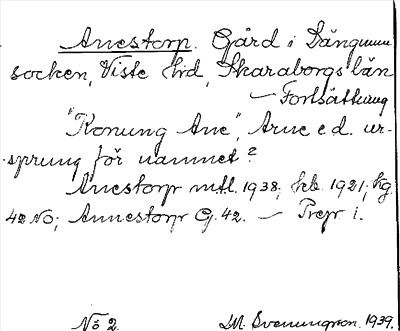 Anestorp. Gård i Längnum
socken, Viste hd, Skaraborgs län
— Fortsättning
"Konung Ane", Arne e.d. ur-
sprung för namnet?
Anestorp mtl. 1938; hkb. 1921; kg
42 NO; Annestorp G. 42. — Prep. i.
No 2. M. Svenungson. 1939.